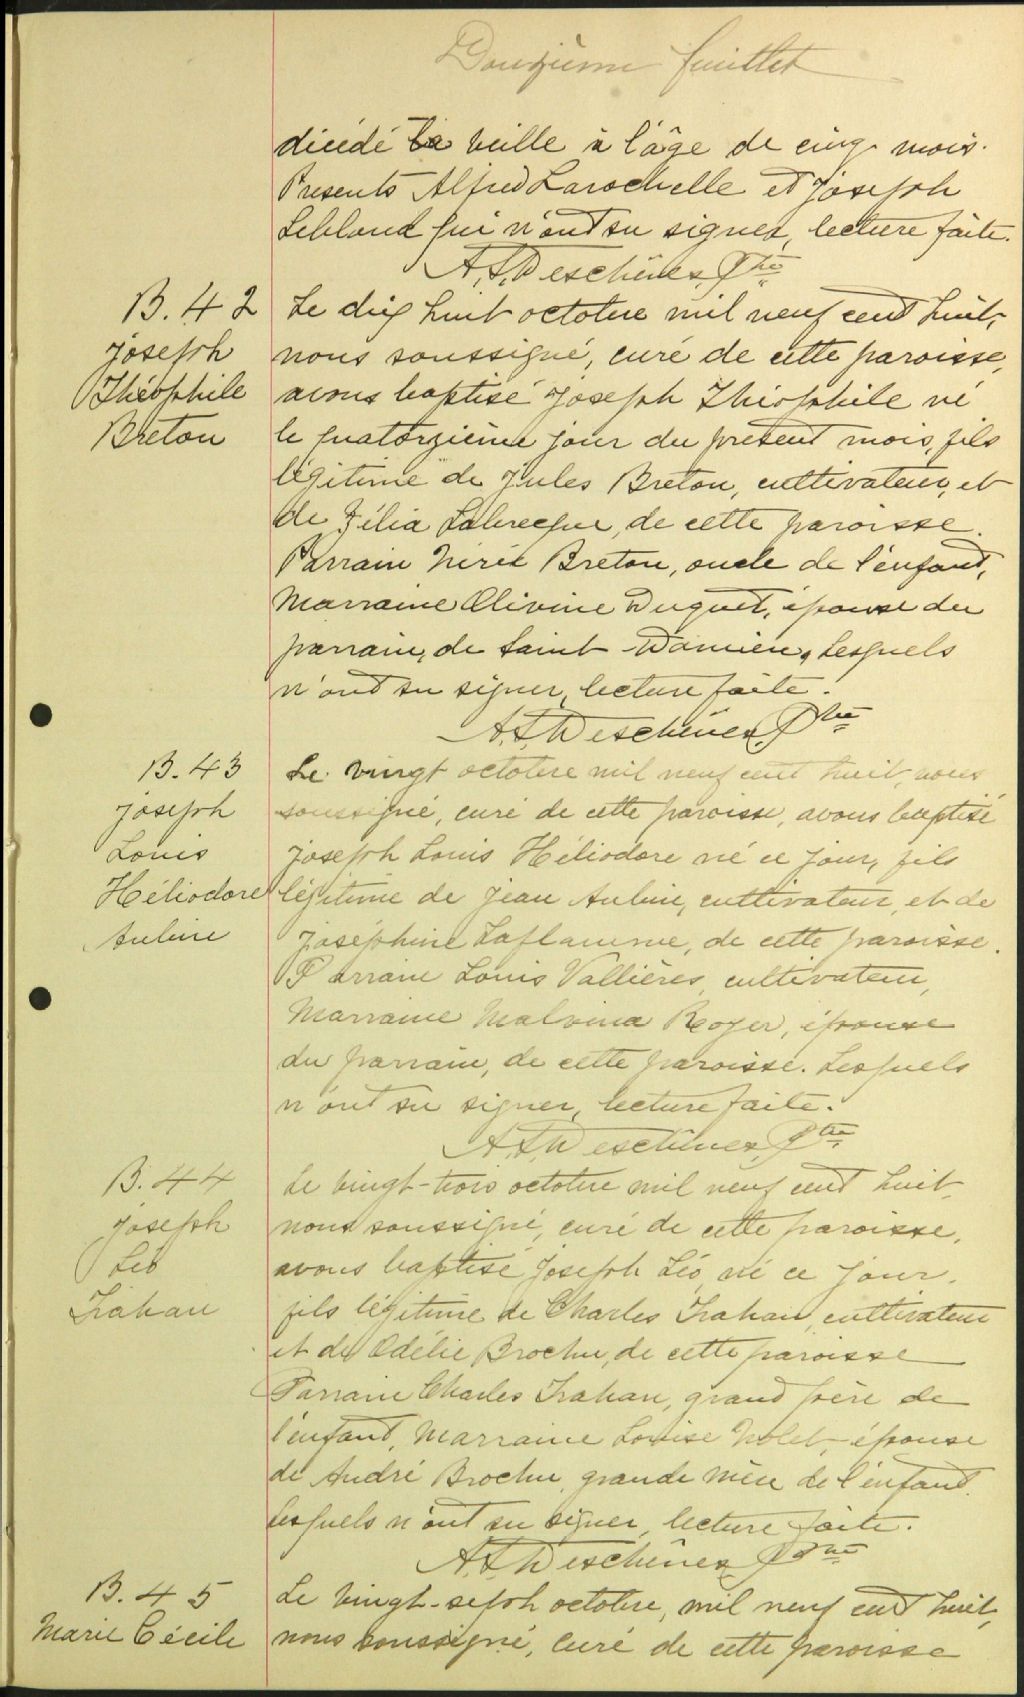 Douzième feuillet
décédé la veille à l'âge de cinq mois.
Présents Alfred Larochelle et Joseph
Leblond qui n'ont su signer, lecture faite.
A.S. Deschênes, Ptre
B. 42
Joseph
Théophile
Breton
Le dix huit octobre mil neuf cent huit,
nous soussigné, curé de cette paroisse,
avons baptisé Joseph Théophile né
le quatorzième jour du présent mois, fils
légitime de Jules Breton, cultivateur, et
de Zélia Labrecque, de cette paroisse.
Parrain Nérée Breton, oncle de l'enfant,
Marraine Olivine Duquet, épouse du
parrain, de Saint-Damien, Lesquels
n'ont su signer, lecture faite.
A.S. Deschênes, Ptre
B. 43
Joseph
Louis
Héliodore
Aubin
Le vingt octobre mil neuf cent huit, nous
soussigné, curé de cette paroisse, avons baptisé
Joseph Louis Héliodore né ce jour, fils
légitime de Jean Aubin, cultivateur, et de
Joséphine Laflamme, de cette paroisse.
Parrain Louis Vallières, cultivateur,
Marraine Malvina Royer, épouse
du parrain, de cette paroisse. Lesquels
n'ont su signer, lecture faite.
A.S. Deschênes, Ptre
B. 44
Joseph
Léo
Trahan
Le vingt-trois octobre mil neuf cent huit,
nous soussigné, curé de cette paroisse,
avons baptisé Joseph Léo, né ce jour,
fils légitime de Charles Trahan, cultivateur
et de Odélie Brochu, de cette paroisse
Parrain Charles Trahan, grand père de
l'enfant, Marraine Louise Nolet, épouse
de André Brochu, grande mère de l'enfant.
Lesquels n'ont su signer, lecture faite.
A.S. Deschênes, Ptre
B. 45
Marie Cécile
Le vingt-sept octobre, mil neuf cent huit,
nous soussigné, curé de cette paroisse